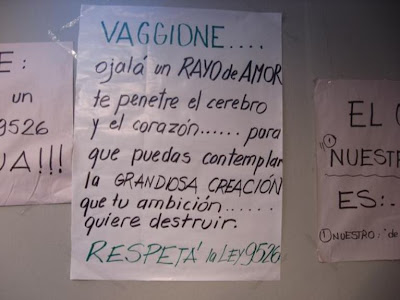 VAGGIONE....
ojalá un RAYO de AMOR
te penetre el cerebro
y el corazón...... para
que puedas contemplar
la GRANDIOSA CREACIÓN
que tu ambición......
quiere destruir.
RESPETÁ la LEY 9526
E:
un
9526
A!!!
EL
① NUESTR
ES:.
① NUESTRO: "de